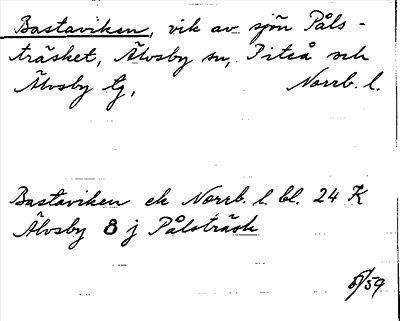 Bastaviken, vik av sjön Påls-
träsket, Älvsby sn, Piteå och
Älvsby tg, Norrb. l.
Bastaviken ek Norrb. l. bl. 24 K
Älvsby 8 j Pålsträsk
5/59